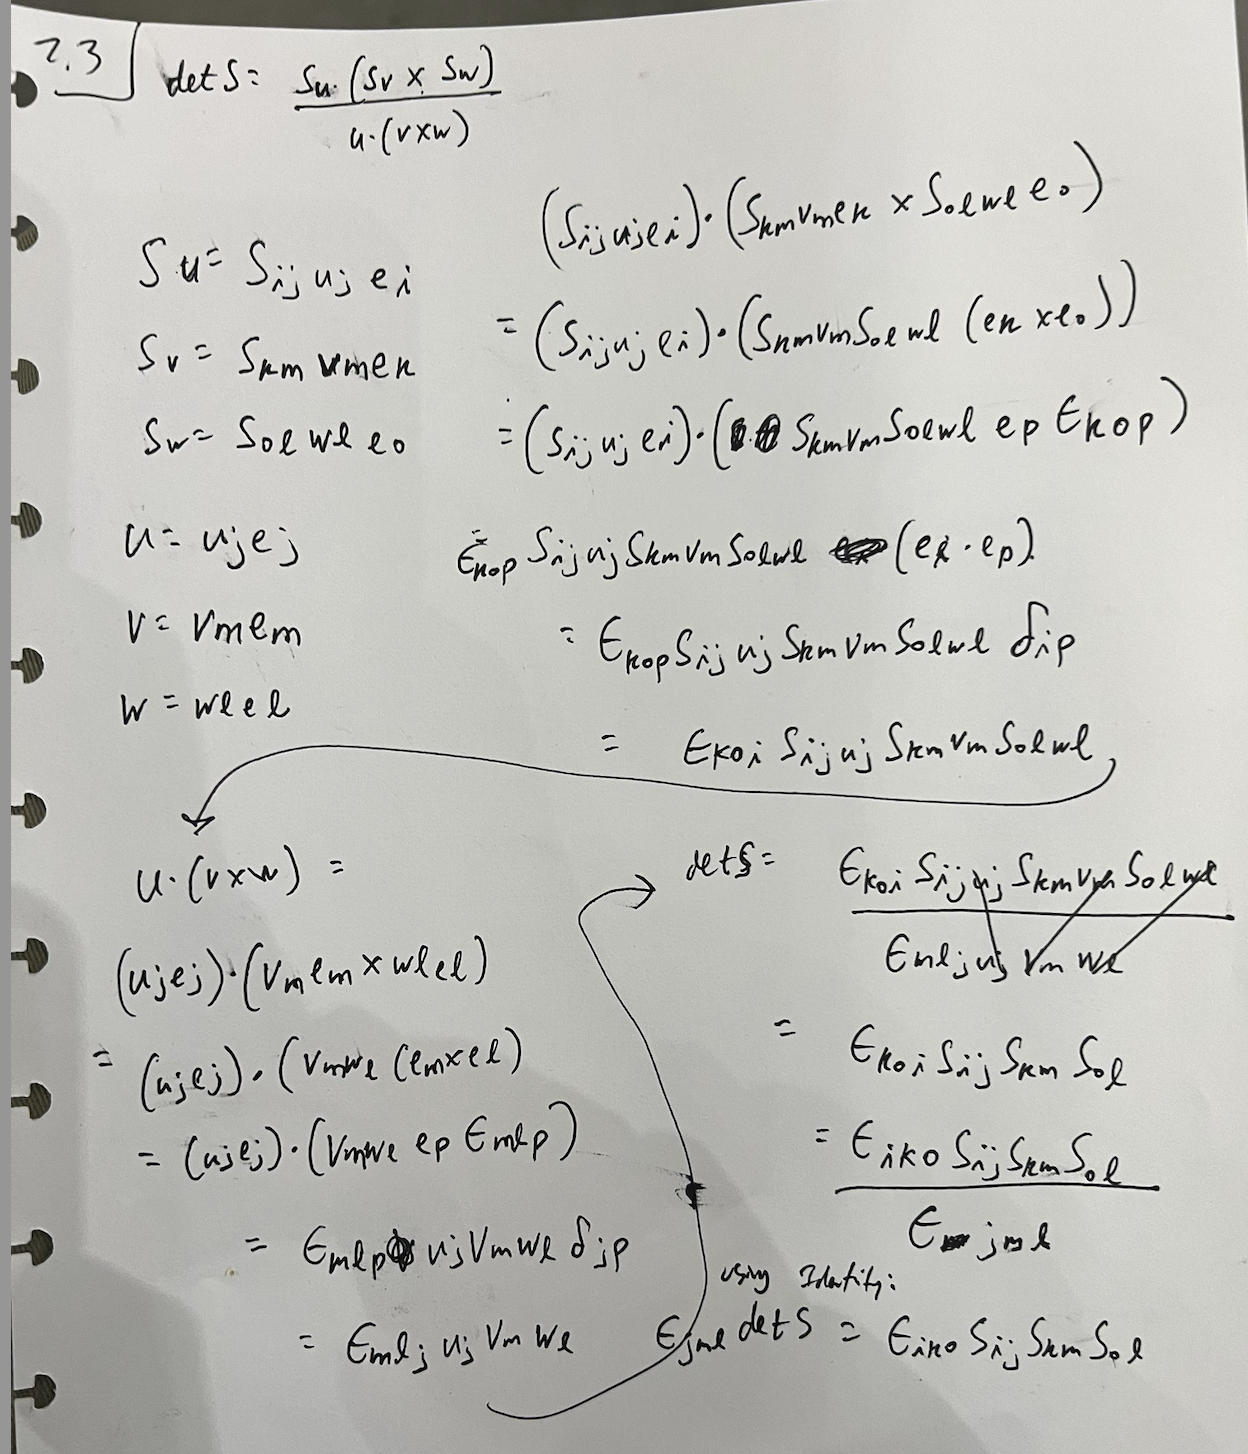 2.3
det S = Su·(Sv × Sw) / u·(v×w)
Su = Sij uj ei
Sv = Skm vm ek
Sw = Sol wl eo
u = uj ej
v = vm em
w = wl el
(Sij uj ei)·(Skm vm ek × Sol wl eo)
= (Sij uj ei)·(Skm vm Sol wl (ek × eo))
= (Sij uj ei)·(Skm vm Sol wl ep ϵkop)
= ϵkop Sij uj Skm vm Sol wl (ei · ep)
= ϵkop Sij uj Skm vm Sol wl δip
= ϵkoi Sij uj Skm vm Sol wl
u·(v×w) =
(uj ej)·(vm em × wl el)
= (uj ej)·(vm wl (em × el)
= (uj ej)·(vm wl ep ϵmlp)
= ϵmlp uj vm wl δjp
= ϵmlj uj vm wl
det S = ϵkoi Sij uj Skm vm Sol wl / ϵmlj uj vm wl
= ϵkoi Sij Skm Sol
= ϵiko Sij Skm Sol / ϵjml
using Identity:
ϵjml det S = ϵiko Sij Skm Sol